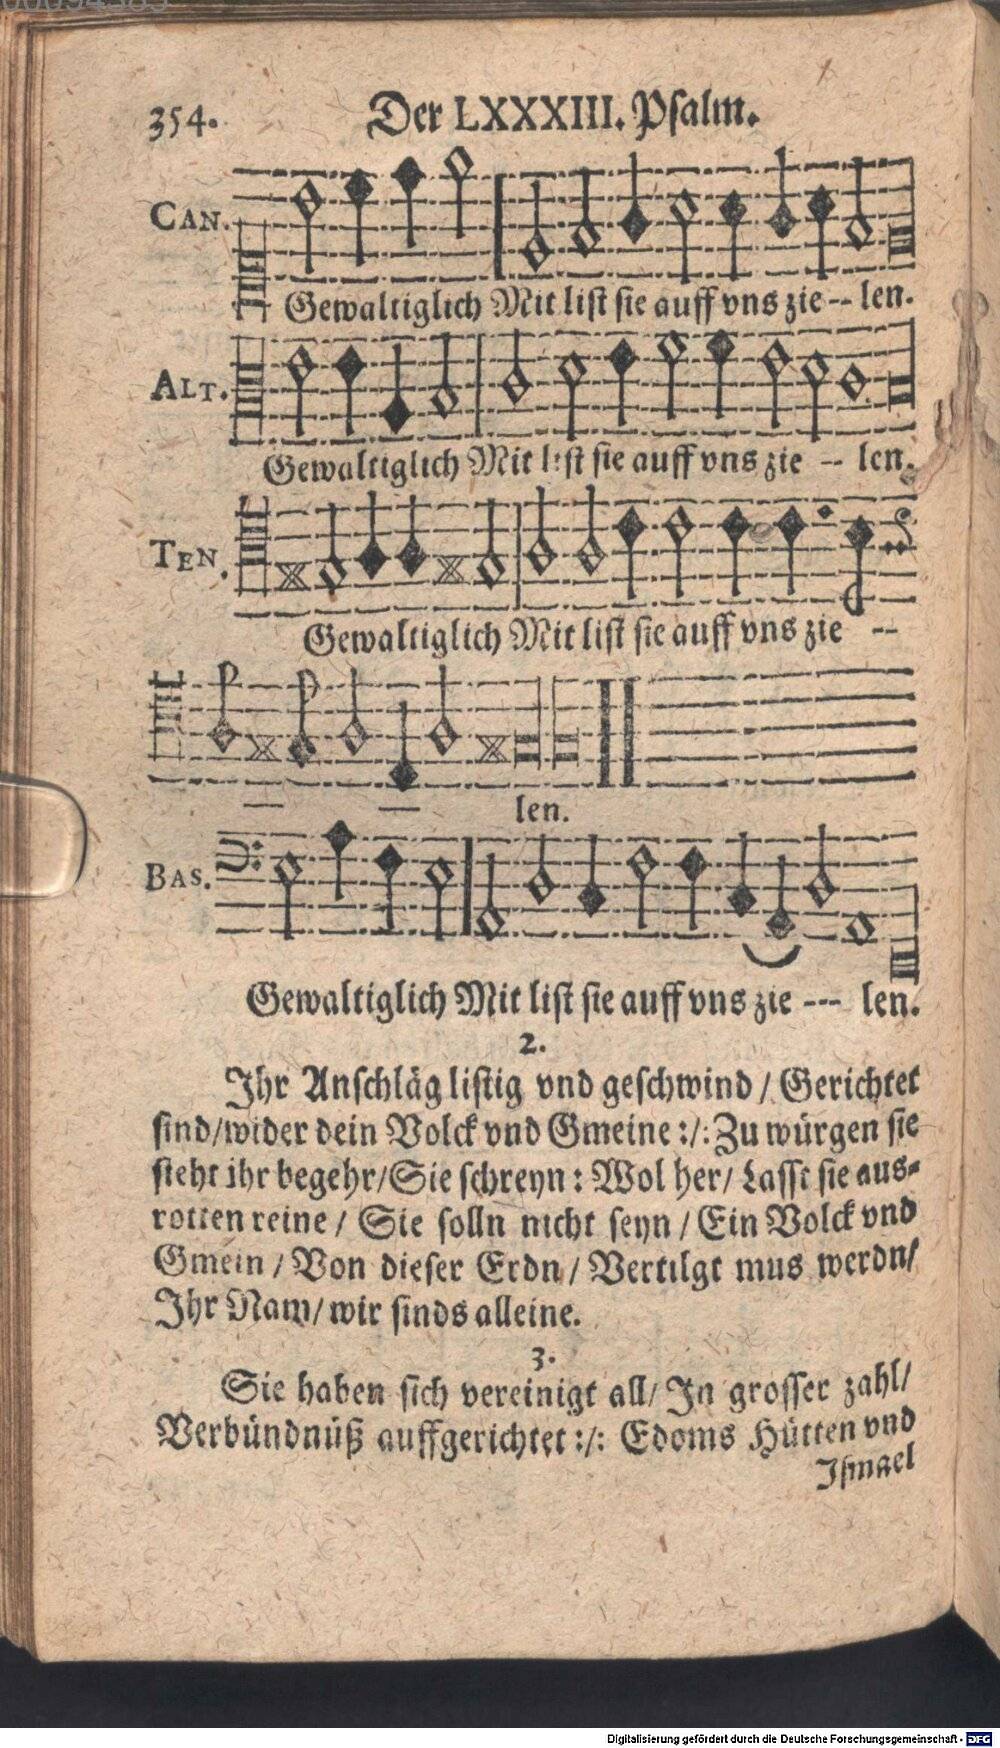 354.
Der LXXXIII. Psalm.
CAN.
Gewaltiglich Mit list sie auff vns zie -- len.
ALT.
Gewaltiglich Mit list sie auff vns zie -- len.
TEN.
Gewaltiglich Mit list sie auff vns zie --
len.
BAS.
Gewaltiglich Mit list sie auff vns zie --- len.
2.
Ihr Anschläg listig vnd geschwind / Gerichtet
sind/wider dein Volck vnd Gmeine :/: Zu würgen sie
steht ihr begehr/Sie schreyn: Wol her/ Lasst sie aus-
rotten reine / Sie solln nicht seyn / Ein Volck vnd
Gmein / Von dieser Erdn / Vertilgt mus werdn/
Ihr Nam/ wir sinds alleine.
3.
Sie haben sich vereinigt all/ In grosser zahl/
Verbündnüß auffgerichtet :/: Edoms Hütten vnd
Ismael
Digitalisierung gefördert durch die Deutsche Forschungsgemeinschaft - DFG